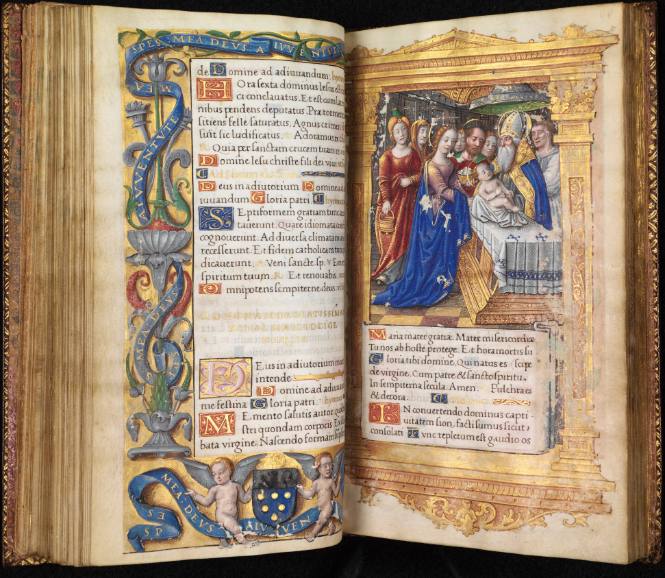 SPES MEA DEUS A IVVENTVTE
MEA
A IVVENTVTE
MEA DEVS
SPES
MEA DEVS
A IVVEN
de. Domine ad adiuuandum.
Hora sexta dominus Iesus
ci conclauatus. Et est cum
nibus pendens deputatus. Prae tormentis
sitiens felle saturatus. Agnus crimen
sust sic ludificatus. Adoramus
Quia per sanctam crucem tuam
Domine Iesu christe fili dei viui
Deus in adiutorium Domine ad
iuuandum Gloria patri
Septiformem gratiam tunc
tauerunt. Quare idiomata
cognouerunt. Ad diuersa climata
recesserunt. Et fidem catholicam
dicauerunt. Veni sancte sp. V Emitte
spiritum tuum. R Et renouabis
Omnipotens sempiterne deus
Deus in adiutorium meum
intende
Domine ad adiuuan
me festina Gloria patri.
Memento salutis autor quod
stri quondam corporis Ex
bata virgine. Nascendo formam
Maria mater gratiæ. Mater misericordiæ
Tu nos ab hoste protege. Et hora mortis su
Gloria tibi domine. Qui natus es scipe
de virgine. Cum patre & sancto spiritu.
In sempiterna secula. Amen. Pulchra es
& decora.
IN conuertendo dominus capti
uitatem sion, facti sumus sicut
consolati Tunc repletum est gaudio os